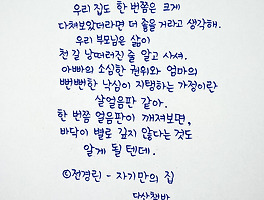 우리 집도 한 번쯤은 크게
다쳐보았더라면 더 좋을 거라고 생각해.
우리 부모님은 삶이
천 길 낭떠러진 줄 알고 사셔.
아빠의 소심한 권위와 엄마의
뻣뻣한 낙심이 지탱하는 가정이란
살얼음판 같아.
한 번쯤 얼음판이 깨져보면,
바닥이 별로 깊지 않다는 것도
알게 될 텐데.
©전경린 - 자기만의 집
다산책방